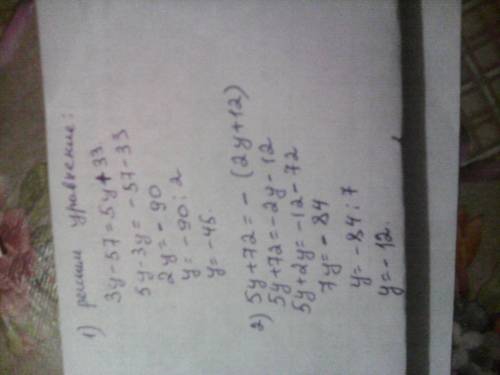 1) решим уравнение:
3y-57=5y+33
5y-3y=-57-33
2y=-90
y=-90:2
y=-45.
2) 5y+72=-(2y+12)
5y+72=-2y-12
5y+2y=-12-72
7y=-84
y=-84:7
y=-12.